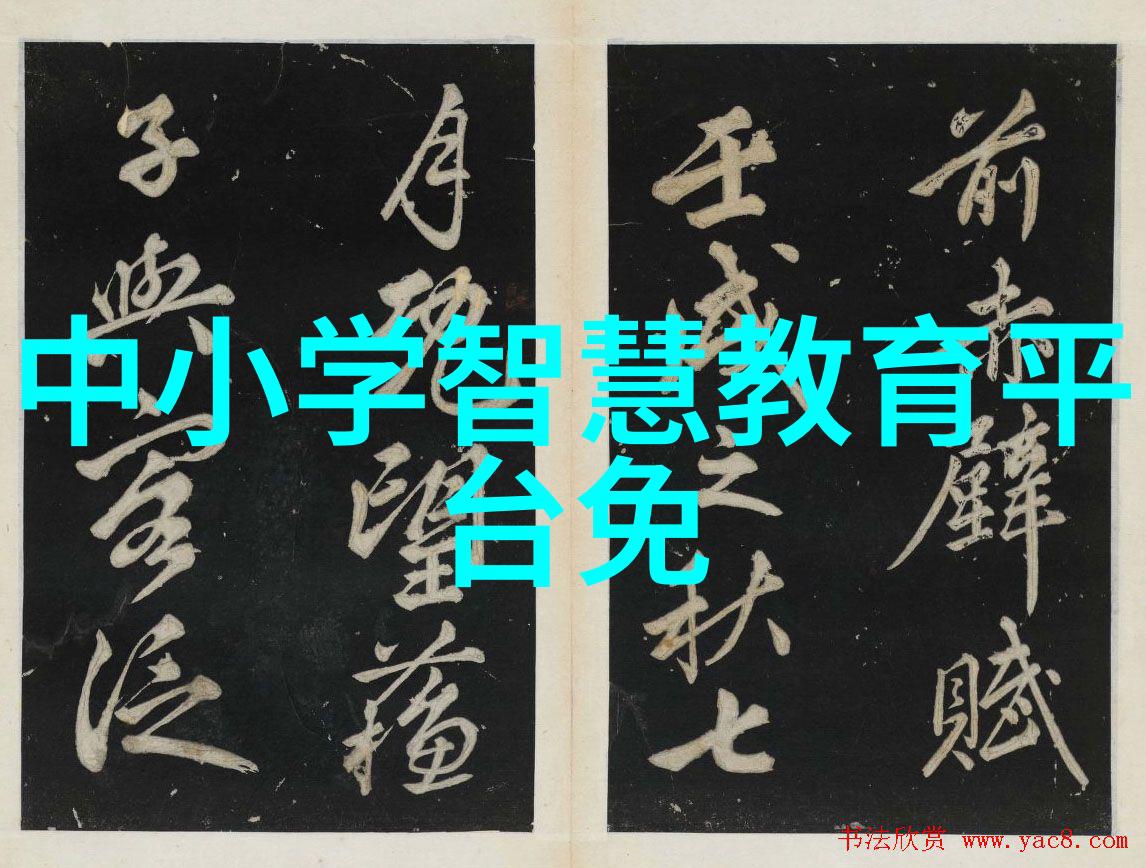 前赤壁賦
壬戌之秋七
月既望蘓
子與客泛
中小学智慧教育平
台免
书法欣赏 www.yac8.com